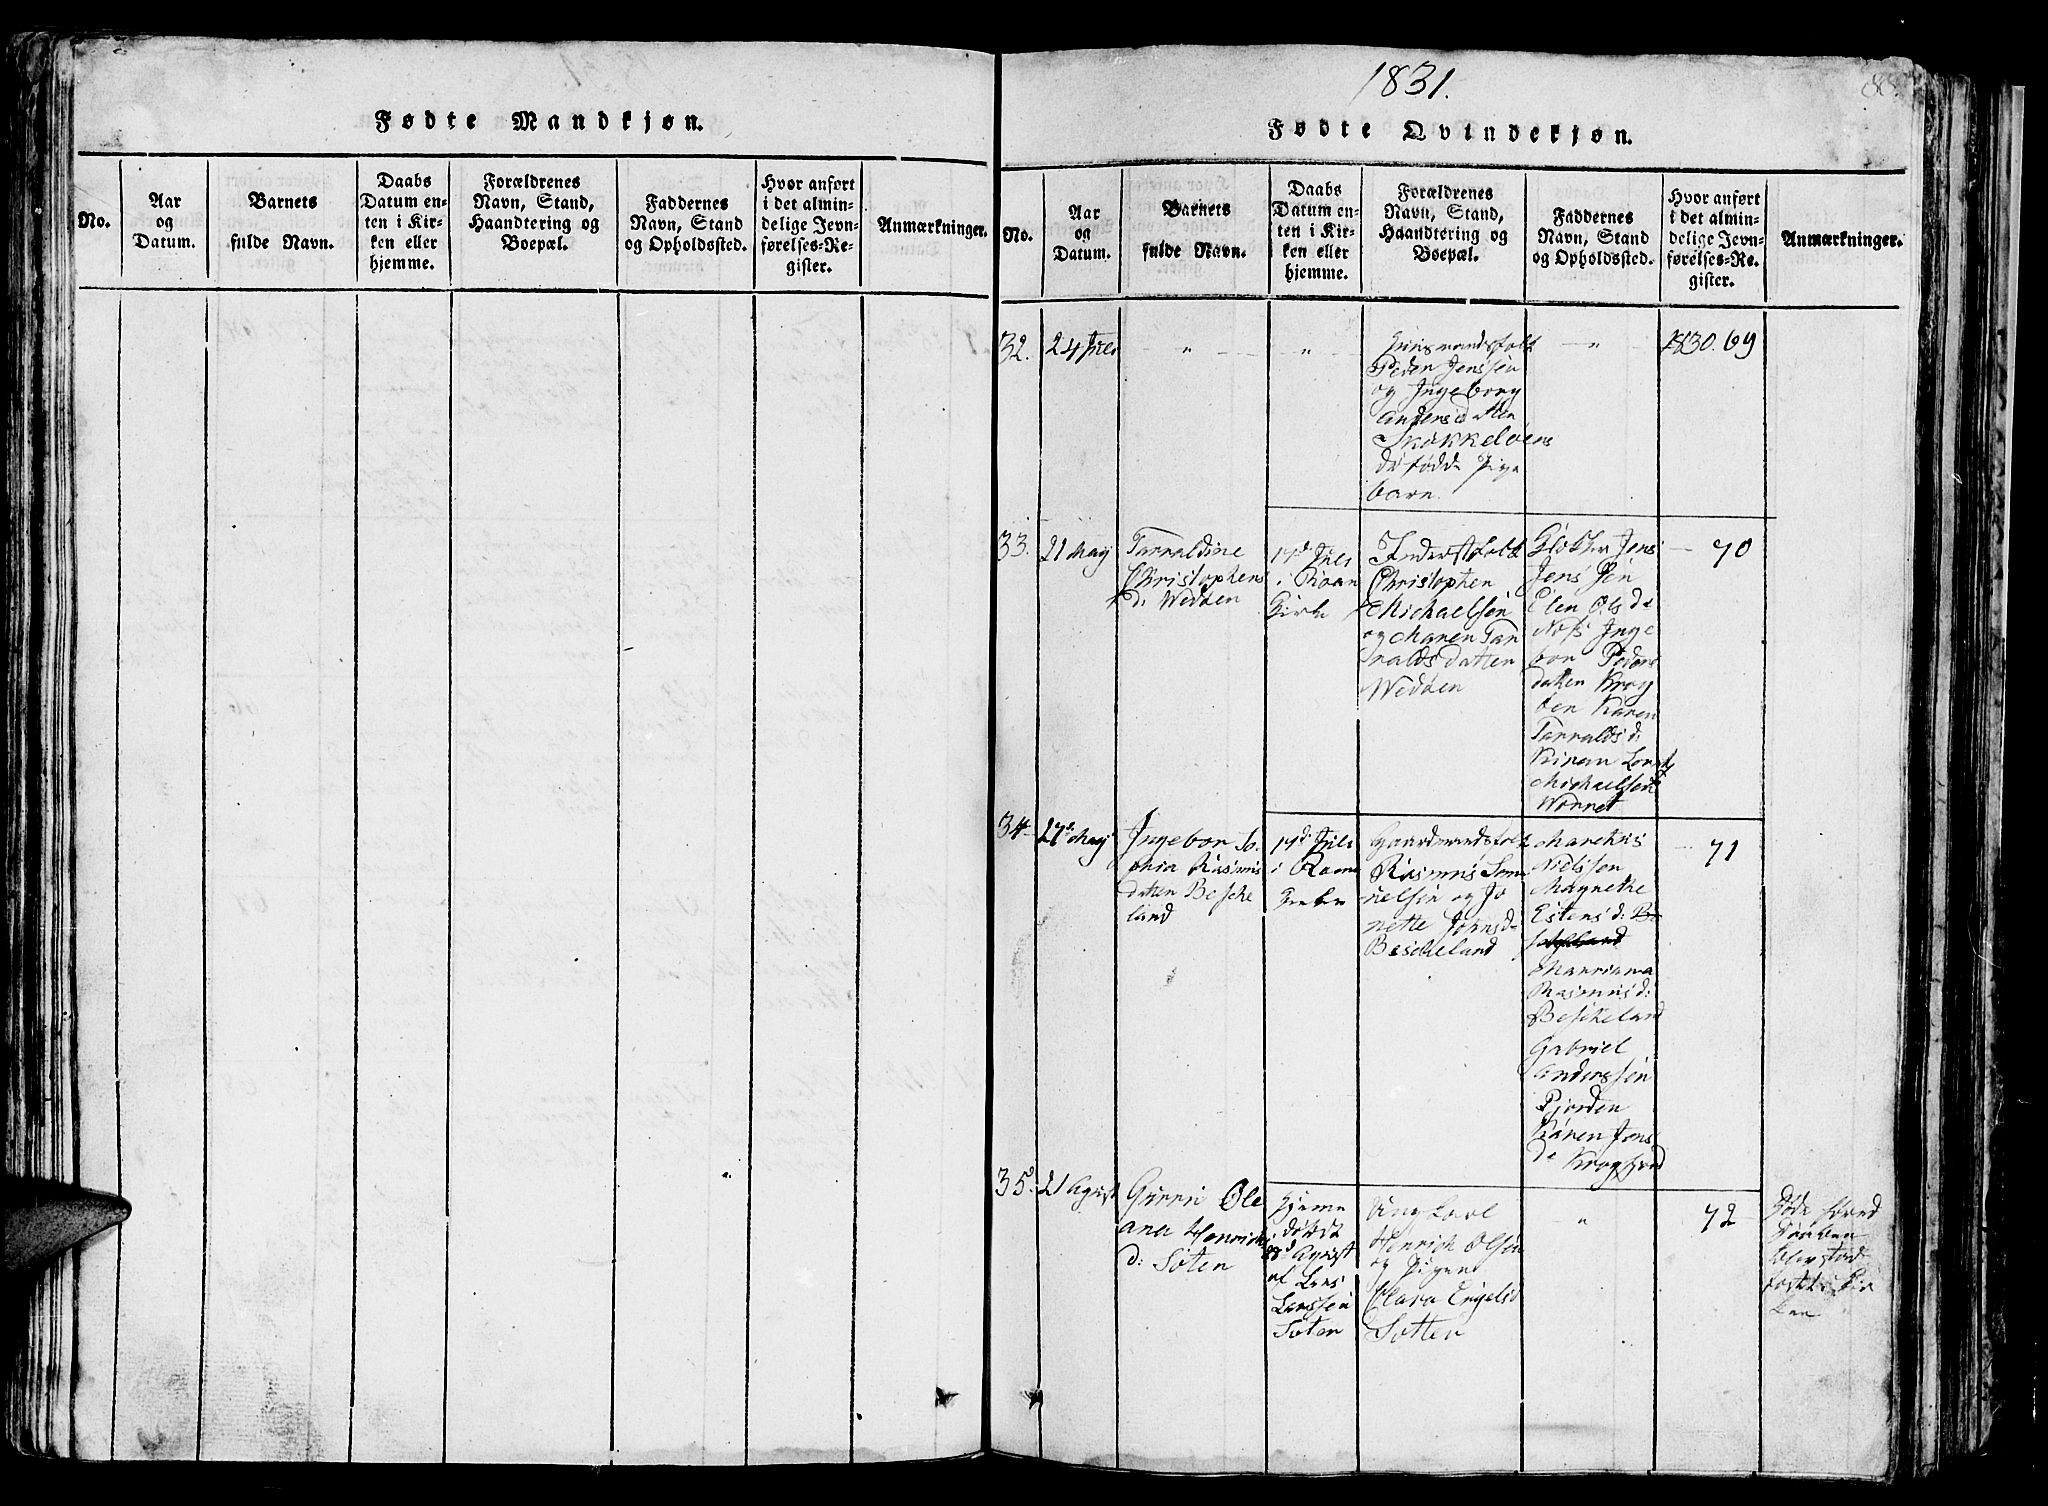 Fødte Mandkjøn.
No.
Aar
og
Datum.
Barnets
fulde Navn.
Daabs
Datum en-
ten i Kir-
ken eller
hjemme.
Forældrenes
Navn, Stand,
Haandtering og
Boepæl.
Faddernes
Navn, Stand
og Opholdssted.
Hvor anført
i det almin-
delige Jevn-
førelses-Re-
gister.
Anmærkninger.
1831.
88
Fødte Qvindekjøn.
No.
Aar
og
Datum.
Barnets
fulde Navn.
Daabs
Datum en-
ten i Kir-
ken eller
hjemme.
Forældrenes
Navn, Stand,
Haandtering og
Boepæl.
Faddernes
Navn, Stand
og Opholdssted.
Hvor anført
i det almin-
delige Jevn-
førelses-Re-
gister.
Anmærkninger.
32.
24
"
"
Peder Jenssen
og Ingeborg
Andersdatter
død fødde Pige
barn
"
1830. 69
33.
21 May
Tarraldine
Christophers
d: Wedøen
17d
i Roan
Kirke
Inderstfolk
Christopher
Michaelsen
og Maren Tar
raldsdatter
Wedøen
Klokker Jens
Jenssen
Elen Olsd
Ness Inge
bor Peders
datter Krog
øen Karen
Tarralds d:
Kiran
Michaelsen
Worret
70
34
27d May
Ingebor So
phia Rasmus
datter Beske
land
17d
i Roan
Kirke
Gaardmandsfolk
Rasmus
nelsen og Jo
nette Johnsd
Beskeland
Marekus
Nielssen
Magrethe
Estens d: Be
skeland
Marriana
Rasmus d:
Beskeland
Gabriel
Anderssen
Fjorden
Karen Jens
d: Krogfjord
71
35
21 Agust
Gurri Ole
ana Henrichs
d: Søten
Hjeme
døbt
28d Agust
af Lars
Larssen
Søten
Ungkarl
Henrich Olsen
og Pigen
Clara Engelsd
Søtten
"
72
Døde førend